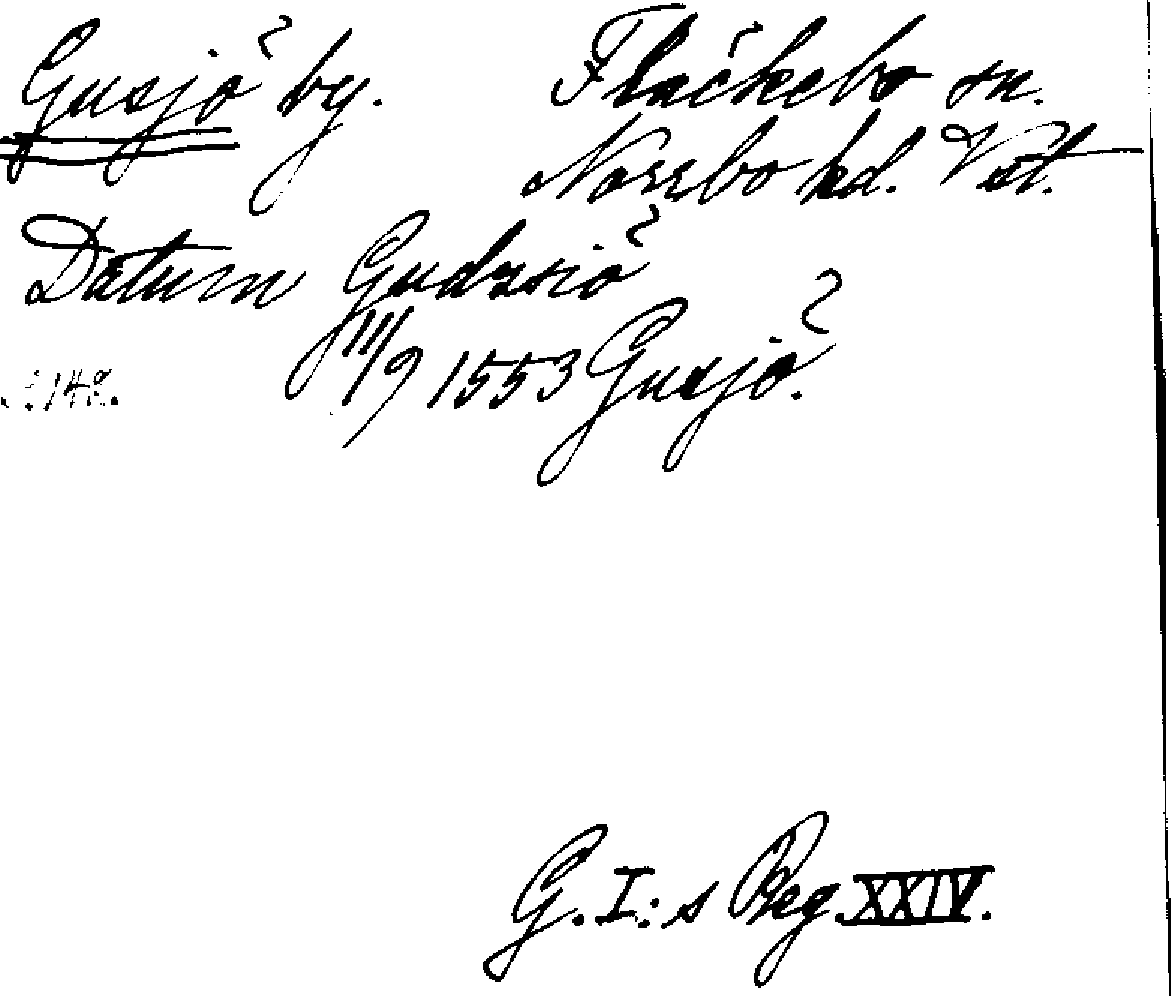 Gusjö by. Fläckebo sn.
Norrbo hd. Vstl.
Datum Gudzsiö
11/9 1553 Gusjö.
s. 148.
G. I:s Reg. XXIV.